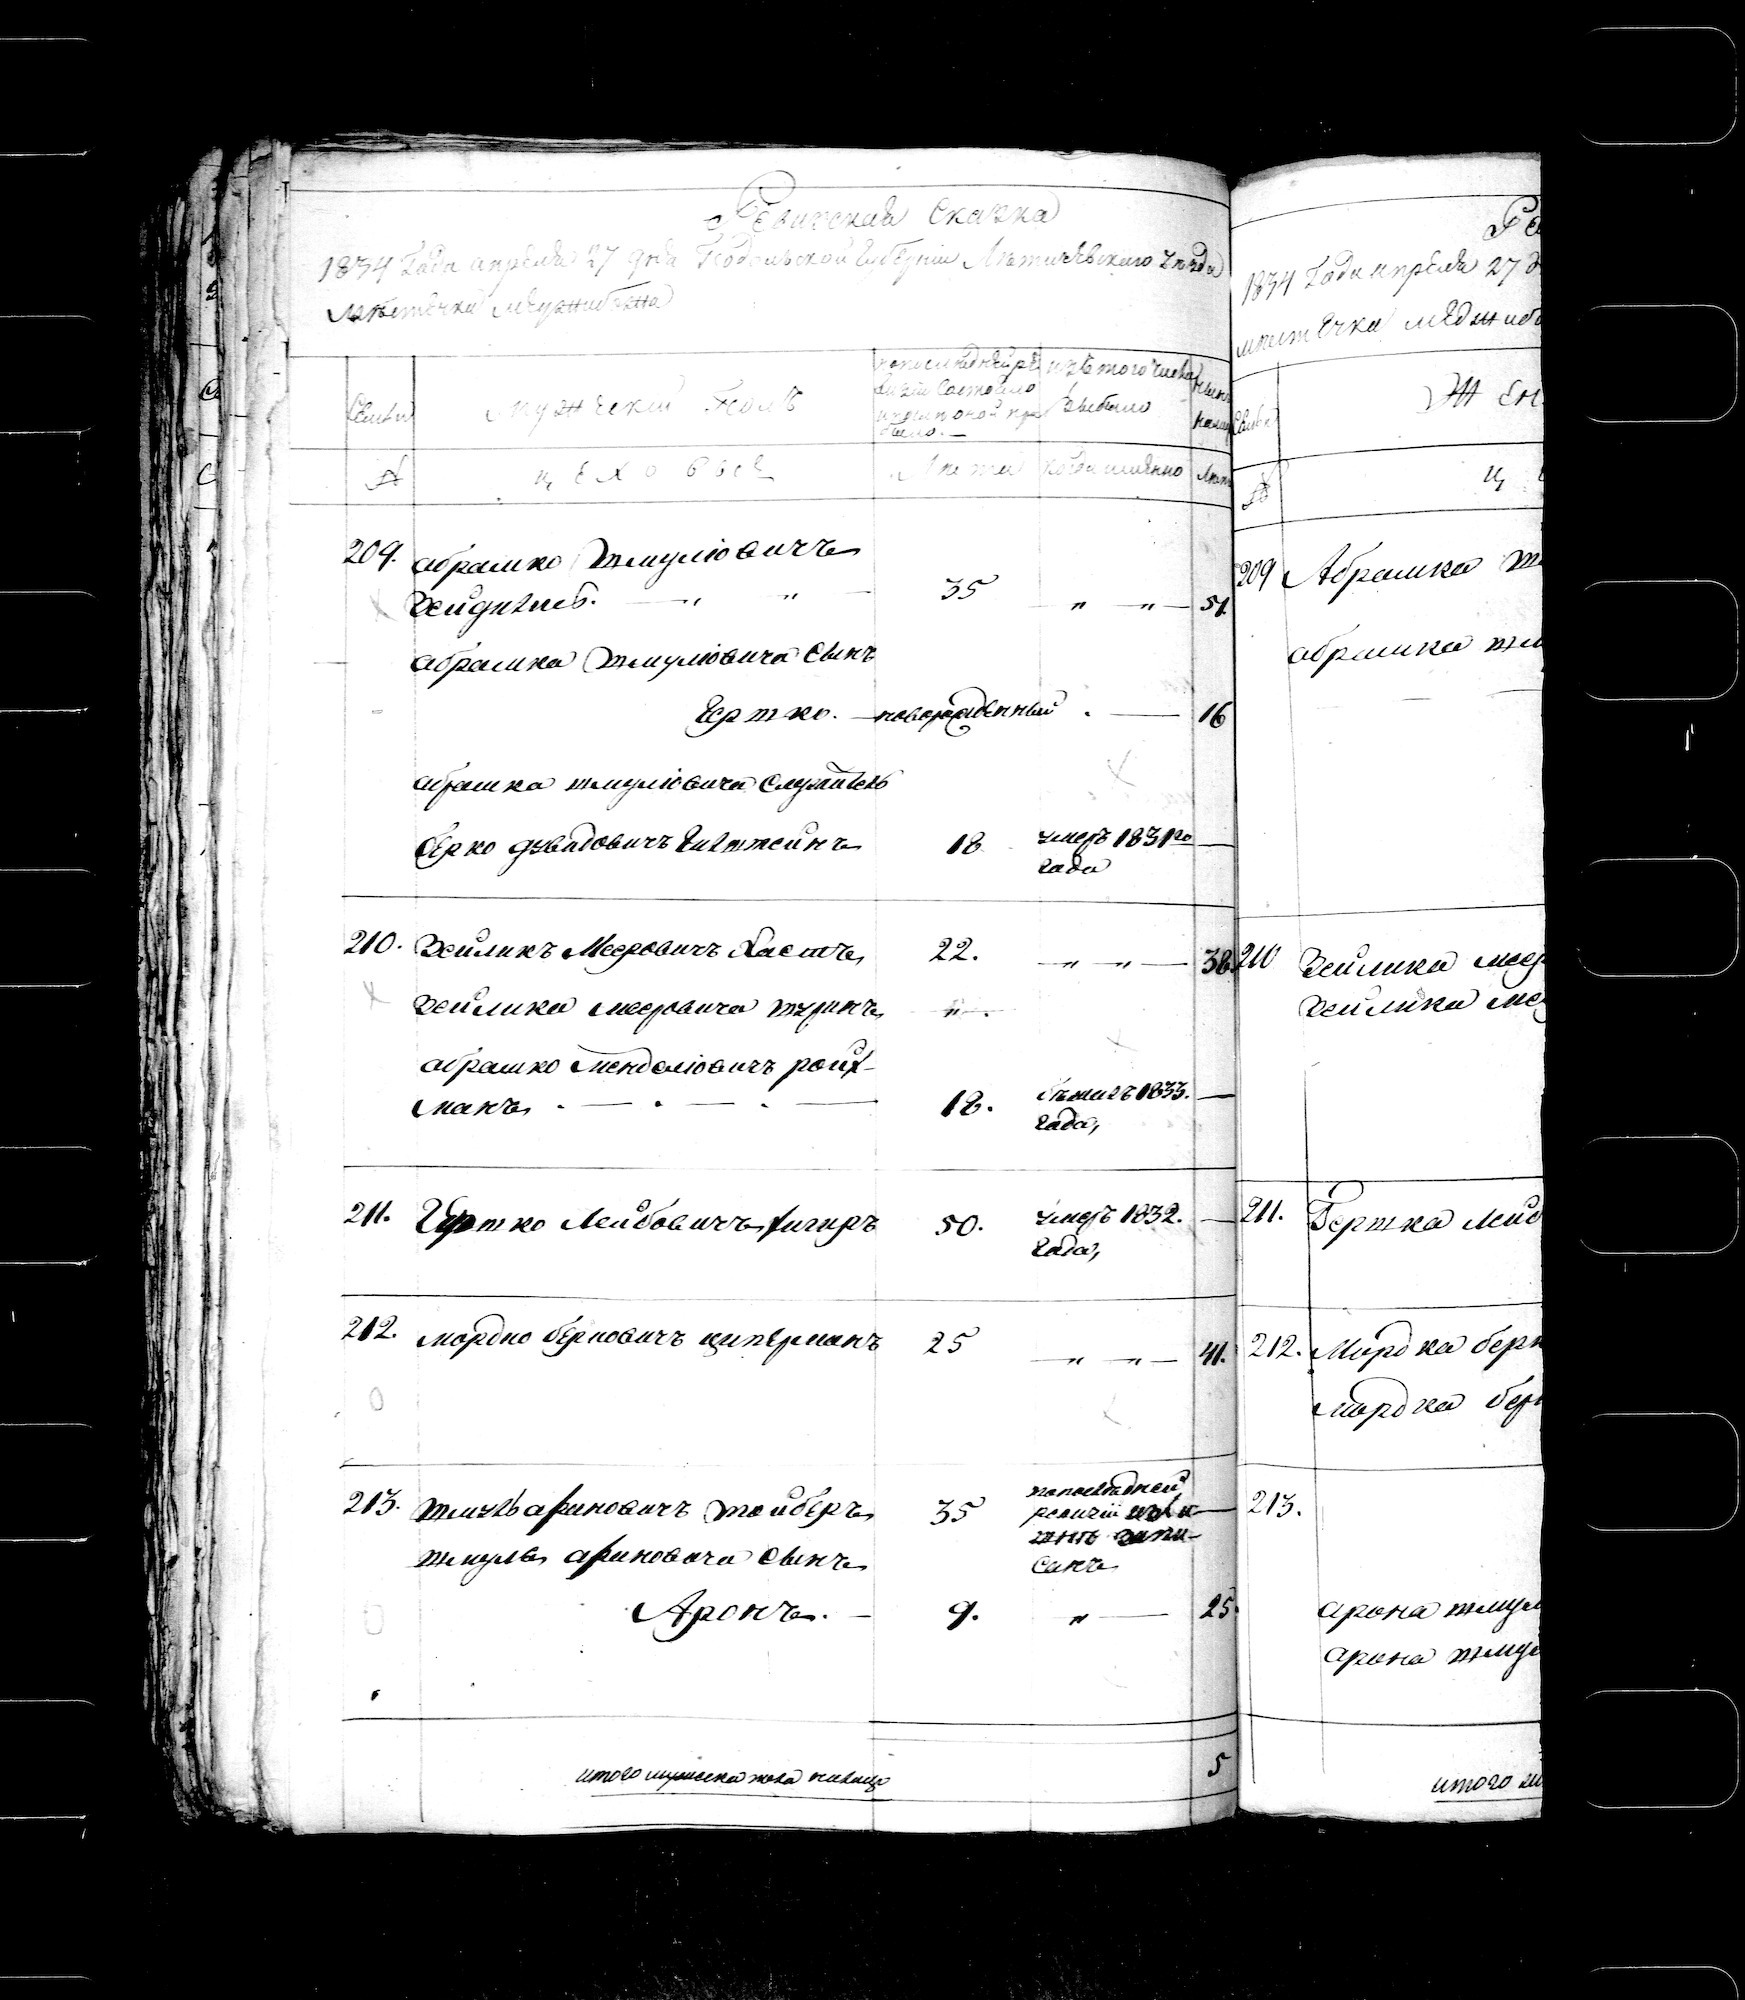 Ревизская Сказка
1834 Года апреля 27 дня Подольской Губернии Летичевского уезда
местечка Меджибожа
Семьи
Мужеский Полъ
по последней ре
визии состояло
и после оной при
было.
изъ того числа
выбыло
ныне
налицо
№
цеховые
Лета
когда именно
лета
209. абрамко Шмулiовичъ
35 " " 51.
абрамка Шмулiовича сынъ
Гершко. — новорожденный . — 16
абрамка шмулiовича служитель
берко давидовичъ 18 умеръ 1831го —
года
210. Зейликъ Мееровичъ 22. " " — 38.
Зейлика мееровича шуринъ "
абрамко Менделiовичъ ройт-
манъ . — . — . — 18. бежалъ 1833. —
года,
211. Гершко Лейбовичъ 50. умеръ 1832. —
года,
212. мордко берковичъ циперманъ 25 " " — 41.
213. шмуль ароновичъ тойберъ 35 по последней
ревизии —
запи-
санъ
шмуля ароновича сынъ
Аронъ. — 9. " — 25.
итого мужеска пола налицо 5
Ре
1834 Года апреля 27 д
местечка меджибо
Жен
Семьи
№
ц
209 Абрамка ш
абрамка шм
210 Зейлика меер
Зейлика ме
211. Гершка Лейб
212. Мордка берк
мордка бер
213.
арона шмул
арона шмул
итого